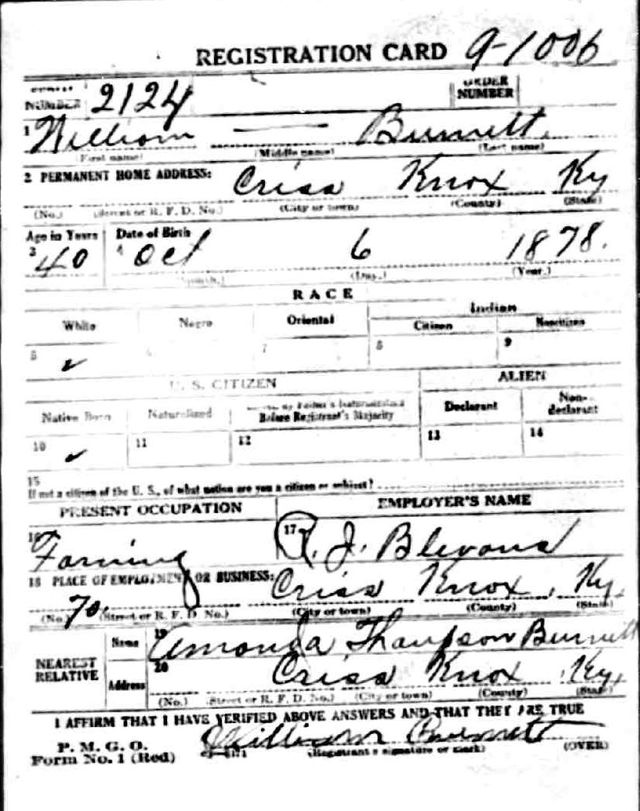 REGISTRATION CARD 9-1006
SERIAL NUMBER 2124 ORDER NUMBER
1 William — Burnett
(First name) (Middle name) (Last name)
2 PERMANENT HOME ADDRESS: Criss Knox Ky
(No.) (Street or R. F. D. No.) (City or town) (County) (State)
Age in Years Date of Birth
3 40 4 Oct 6 1878.
(Month.) (Day.) (Year.)
RACE
White Negro Oriental Indian
Citizen Noncitizen
5 ✓ 6 7 8 9
U. S. CITIZEN ALIEN
Native Born Naturalized Citizen by Father's Naturalization Before Registrant's Majority Declarant Non-declarant
10 ✓ 11 12 13 14
15
If not a citizen of the U. S., of what nation are you a citizen or subject?
PRESENT OCCUPATION EMPLOYER'S NAME
16 Farming 17 J. Blevans
18 PLACE OF EMPLOYMENT OR BUSINESS: Criss Knox, Ky.
(No.) (Street or R. F. D. No.) (City or town) (County) (State)
NEAREST RELATIVE Name 19 Amonda Thompson Burnett
Address 20 Criss Knox Ky.
(No.) (Street or R. F. D. No.) (City or town) (County) (State)
I AFFIRM THAT I HAVE VERIFIED ABOVE ANSWERS AND THAT THEY ARE TRUE
P. M. G. O.
Form No. 1 (Red) William Burnett
(Registrant's signature or mark) (OVER)